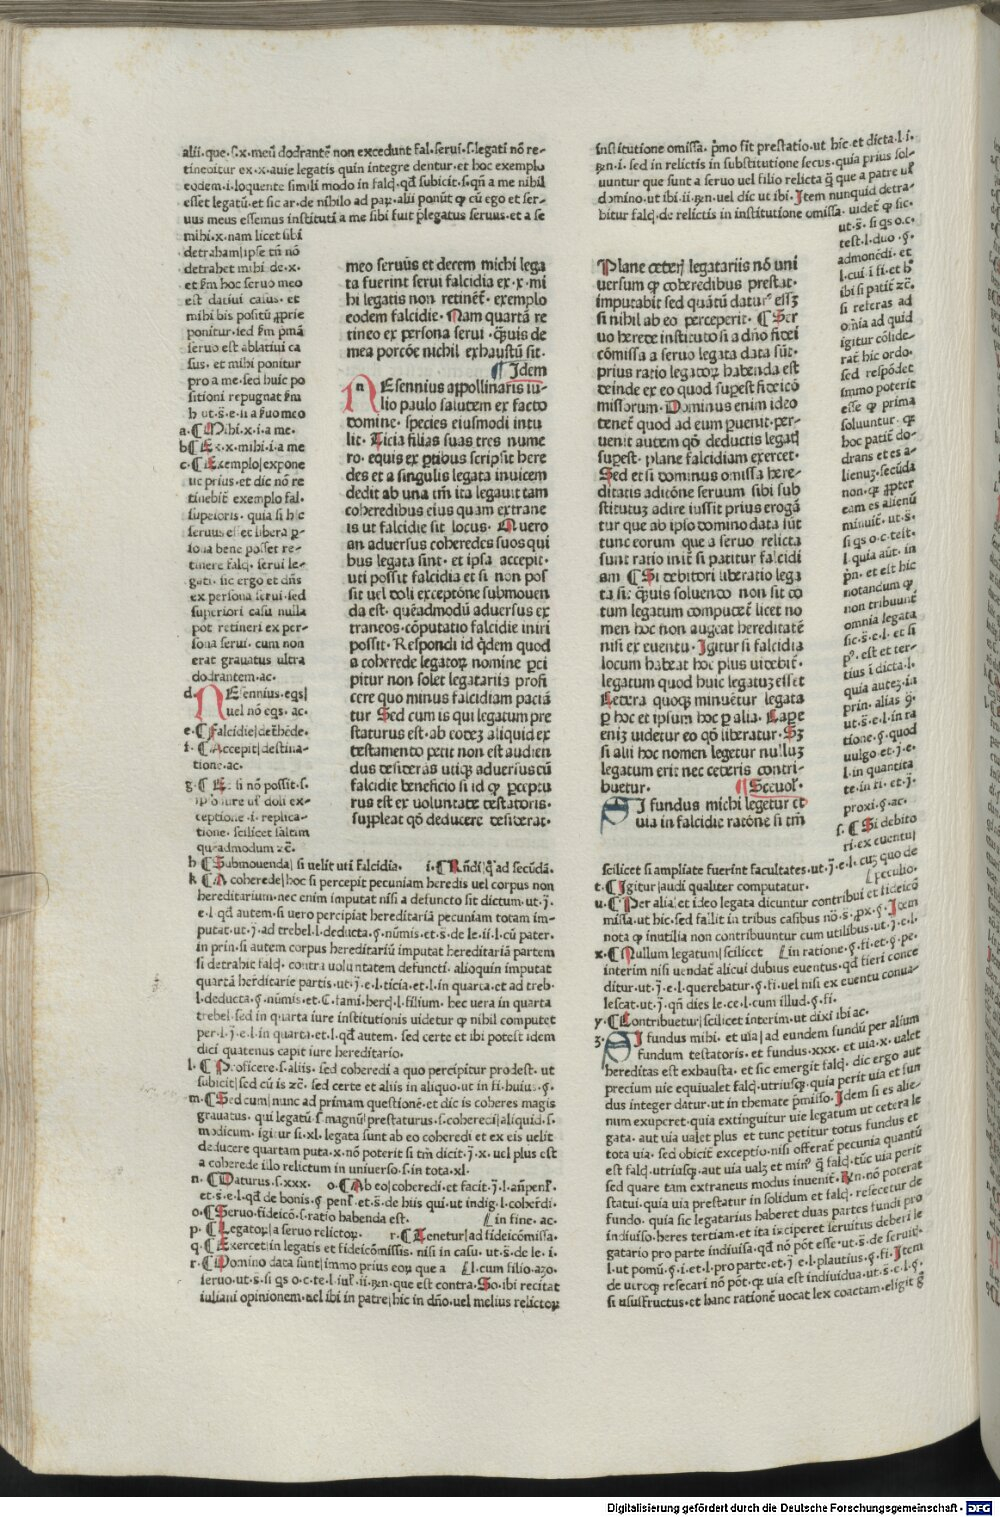 alii·que·s·x·meū dodrantē non excedunt fal·serui·s·legati nō re-
tinebitur ex·x·quie legatis quin integre dentur·et hoc exemplo
eodem·i·loquente simili modo in falcꝭ·qđ subicit·s·qñ a me nihil
esset legatū·et sic ar·de nihilo ad paꝝ·alii ponūt ꝙ cū ego et ser-
uus meus essemus instituti a me sibi fuit p̄legatus seruus·et a se
mihi·x·nam licet sibi
detraham|ipse tñ nō
detrahet mihi de·x·
et s̄m hoc seruo meo
est datiui casus·et
mihi bis positū ꝓprie
ponitur·sed s̄m p̄mā
seruo est ablatiui ca
sus·et mihi ponitur
pro a me·sed huic po
sitioni repugnat s̄m
b ut·s̄·e·li a suo meo
a·¶Mihi·x·i·a me·
b¶Ex·x·mihi·i·a me
c·¶Exemplo|expone
ut prius·et dic nō re
tinebit exemplo fal·
superioris·quia si hic
seruus esset libera ꝑ-
sona bene posset re-
tinere falcꝭ·serui le-
gati·sic ergo et dñs
ex persona serui·sed
superiori casu nulla
pot retineri ex per-
sona serui·cum non
erat grauatus ultra
dodrantem·ac·
d·NEsennius·eqs|
uel nō eqs·ac·
e·¶Falcidie|detrhēde·
f·¶Accepit|destina-
tione·ac·
g·¶Et si nō possit·s·
ipso iure ul̓ doli ex-
ceptione·i·replica-
tione·scilicet saltim
quēadmodum ꝛc̄·
h·¶Submouenda| si uelit uti falcidia· i·¶Rñdi|ꝙ ad secūdā·
k·¶A coherede|hoc si percepit pecuniam heredis uel corpus non
hereditarium·nec enim imputat nisi a defuncto sit dictum·ut·j̄·
e·l·qđ autem·si uero percipiat hereditariā pecuniam totam im-
putat·ut·j̄·ad trebel·l·deducta·§·nūmis·et·s̄·de le·ii·l·cū pater·
in prin·si autem corpus hereditariū imputat hereditariā partem
si detrahit falcꝭ·contra uoluntatem defuncti·alioquin imputat
quartā herditarie partis·ut·j̄·e·l·ticia·et·l·in quarta·et ad treb·
l·deducta·§·nūmis·et·C·fami·hercꝭ·l·filium·hec uera in quarta
trebel·sed in quarta iure institutionis uidetur ꝙ nihil computet
per·l·j̄·e·l·in quarta·et·l·qđ autem·sed certe et ibi potest idem
dici quatenus capit iure hereditario·
l·¶Proficere·s·aliis·sed coheredi a quo percipitur prodest·ut
subicit|sed cū is ꝛc̄·sed certe et aliis in aliquo·ut in fi·huius·§·
m·¶Sed cum|nunc ad primam questionē·et dic is coheres magis
grauatus·qui legatū·s·magnū|prestaturus·s·coheredi|aliquid·s·
modicum·igitur si·xl·legata sunt ab eo coheredi et ex eis uelit
deducere quartam puta·x·nō poterit si tm̄ dicit·j̄·x·uel plus est
a coherede illo relictum in uniuerso·s·in tota·xl·
n·¶Daturus·s·xxx· o·¶Ab eo|coheredi·et facit·j̄·l·añpenl̓·
et·s̄·e·l·qđ de bonis·§ penl̓·et·s̄·de hiis qui·ut indig·l·coherđi·
o·¶Seruo·fideicō·s·ratio habenda est· ⸤in fine·ac·
p·¶Legatoꝝ|a seruo relictoꝝ· r·¶Tenetur|ad fideicōmissa·
q·¶Exercet|in legatis et fideicōmissis·nisi in casu·ut·s̄·de le·i·
r·¶Domino data sunt|immo prius eoꝝ que a ⸤l·cum filio·aʒo·
seruo·ut·s̄·si qs o·c·te·l·iul̓·ii·ꝶn·que est contra·So·ibi recitat
iuliani opinionem·uel ibi in patre|hic in dño·uel melius relictoꝝ
meo seruūs et decem michi lega
ta fuerint serui falcidia ex·x·mi
hi legatis non retinet̄·exemplo
eodem falcidie·Nam quartā re
tineo ex persona serui·ꝗ̄uis de
mea porcōe nichil exhaustū sit·
¶Idem
NEsennius appollinaris iu-
lio paulo salutem ex facto
domine·species eiusmodi intu
lit·Ticia filias suas tres nume
ro·equis ex ꝑtibus scripsit here
des et a singulis legata inuicem
dedit ab una tm̄ ita legauit tam
coheredibus eius quam extrane
is ut falcidie sit locus·Quero
an aduersus coheredes suos qui
bus legata sint·et ipsa accepit·
uti possit falcidia et si non pos
sit uel doli exceptōne submouen
da est·quēadmodū aduersus ex
traneos·cōputatio falcidie iniri
possit·Respondi id ꝗ̄dem quod
a coherede legatoꝝ nomine ꝑci
pitur non solet legatariis profi
cere quo minus falcidiam pacian
tur Sed cum is qui legatum pre
staturus est·ab eodeʒ aliquid ex
testamento petit non est audien
dus desiderās utiqꝫ aduersus cū
falcidie beneficio si id ꝙ ꝑceptu
rus est ex uoluntate testatoris·
suppleat qđ deducere desiderat·
institutione omissa·p̄mo fit prestatio·ut hic·et dicta·l·i·
ꝶn·i·sed in relictis in substitutione secus·quia prius sol-
uuntur que sunt a seruo uel filio relicta ꝗ̄ que a patre ul̓
domino·ut ibi·ii·ꝶn·uel dic ut ibi·Item nunquid detra-
hitur falcꝭ·de relictis in institutione omissa·uidet̄ ꝙ sic·
ut·s̄·si qs o·c·
test·l·duo·§·
admonēdi·et
l·cui·i·fi·et b̓
ibi si patit̄ ꝛc̄·
si referas ad
omīa ad quid
igitur cōside-
rat̄ hic ordo·
sed respōdet
immo poterit
esse ꝙ prima
soluuntur·ꝙ
hoc patit̄ do-
drans et es a-
lienuʒ·secūda
non·ꝙ ꝓpter
eam es alienū
minuit̄·ut·s̄·
si qs o·c·test·
l·quia aūt·in
p̄n·et est hic
notandum ꝙ
non tribuunt̄
omnia legata
sic·s̄·e·l·et si
p̓·est et ter-
tius i dicta·l·
quia autēʒ·in
prin·alias ꝙ·
ut·s̄·e·l·in ra
tione·§·quod
uulgo·et·j̄·e·
l·in quantita
te·in fi·et·j̄·
proxi·§·ac·
s·¶Si debito
ri·ex euentu|
Plane ceteri legatariis nō uni
uersum ꝙ coheredibus prestat·
imputabit sed quātū datur⁹ essꝫ
si nihil ab eo perceperit·¶Ser
uo herede instituto si a dño fidei
cōmissa a seruo legata data sūt·
prius ratio legatoꝝ habenda est
deinde ex eo quod suꝑest fideicō
missorum·Dominus enim ideo
tenet̄ quod ad eum ꝑuenit·per-
uenit autem qđ deductis legatꝭ
suꝑest·plane falcidiam exercet·
Sed et si dominus omissa here-
ditatis aditōne seruum sibi sub
stitutū adire iussit prius erogā
tur que ab ipso domino data sūt
tunc eorum que a seruo relicta
sunt ratio init̄ si patitur falcidi
am ¶Si debitori liberatio lega
ta sit ꝗ̄uis soluendo non sit to
tum legatum computet̄ licet no
men hoc non augeat hereditatē
nisi ex euentu·Igitur si falcidia
locum habeat hoc plus uidebit̄·
legatum quod huic legatuʒ esset
Cetera quoqꝫ minuētur legata
ꝑ hoc et ipsum hoc ꝑ alia·Cape
eniʒ uidetur eo qđ liberatur·Sʒ
si alii hoc nomen legetur nulluʒ
legatum erit nec ceteris contri-
buetur· ¶Sceuol̓·
SI fundus michi legetur et
uia in falcidie ratōne si tm̄
scilicet si ampliate fuerint facultates·ut·j̄·e·l·cuʒ quo de
t·¶Igitur|audi qualiter computatur· ⸤peculio·
u·¶Per alia|et ideo legata dicuntur contribui et fideicō
missa·ut hic·sed fallit in tribus casibus nō·s̄·ꝓx·§·Item
nota ꝙ inutilia non contribuuntur cum utilibus·ut·j̄·e·l·
x·¶Nullum legatum|scilicet ⸤in ratione·§·fi·et·§·pe·
interim nisi uendat̄ alicui dubius euentus·qđ fieri conce
ditur·ut·j̄·e·l·querebatur·§·fi·uel nisi ex euentu conua-
lescat·ut·j̄·qñ dies le·ce·l·cum illud·§·fi·
y·¶Contribuetur|scilicet interim·ut dixi ibi ac·
ʒ·SI fundus mihi·et uia|ad eundem fundū per alium
fundum testatoris·et fundus·xxx·et uia·x·ualet
hereditas est exhausta·et sic emergit falcꝭ·dic ergo aut
precium uie equiualet falcꝭ·utriusqꝫ·quia perit uia et fun
dus integer datur·ut in themate p̄misso·Idem si es alie-
num exuperet·quia extinguitur uie legatum ut cetera le
gata·aut uia ualet plus et tunc petitur totus fundus et
tota uia·sed obicit̄ exceptio·nisi offerat̄ pecunia quantū
est falcꝭ·utriusqꝫ·aut uia ualꝫ et min⁹ ꝗ̄ falcꝭ·tūc uia perit
sed quare tam extraneus modus inuenit̄·ꝶn·nō poterat
statui·quia uia prestatur in solidum et falcꝭ·resecetur de
fundo·quia sic legatarius haberet duas partes fundi pro
indiuiso·heres tertiam·et ita inciperet seruitus deberi le
gatario pro parte indiuisa·qđ nō pōt esse·ut·s̄·de seruit·
l·ut pomū·§·i·et·l·pro parte·et·j̄·e·l·plautius·§·fi·Item
de utroqꝫ resecari nō pōt·ꝙ uia est indiuidua·ut·s̄·e·l·§·
si ususfructus·et hanc rationē uocat lex coactam·eligit ḡ
Digitalisierung gefördert durch die Deutsche Forschungsgemeinschaft · DFG